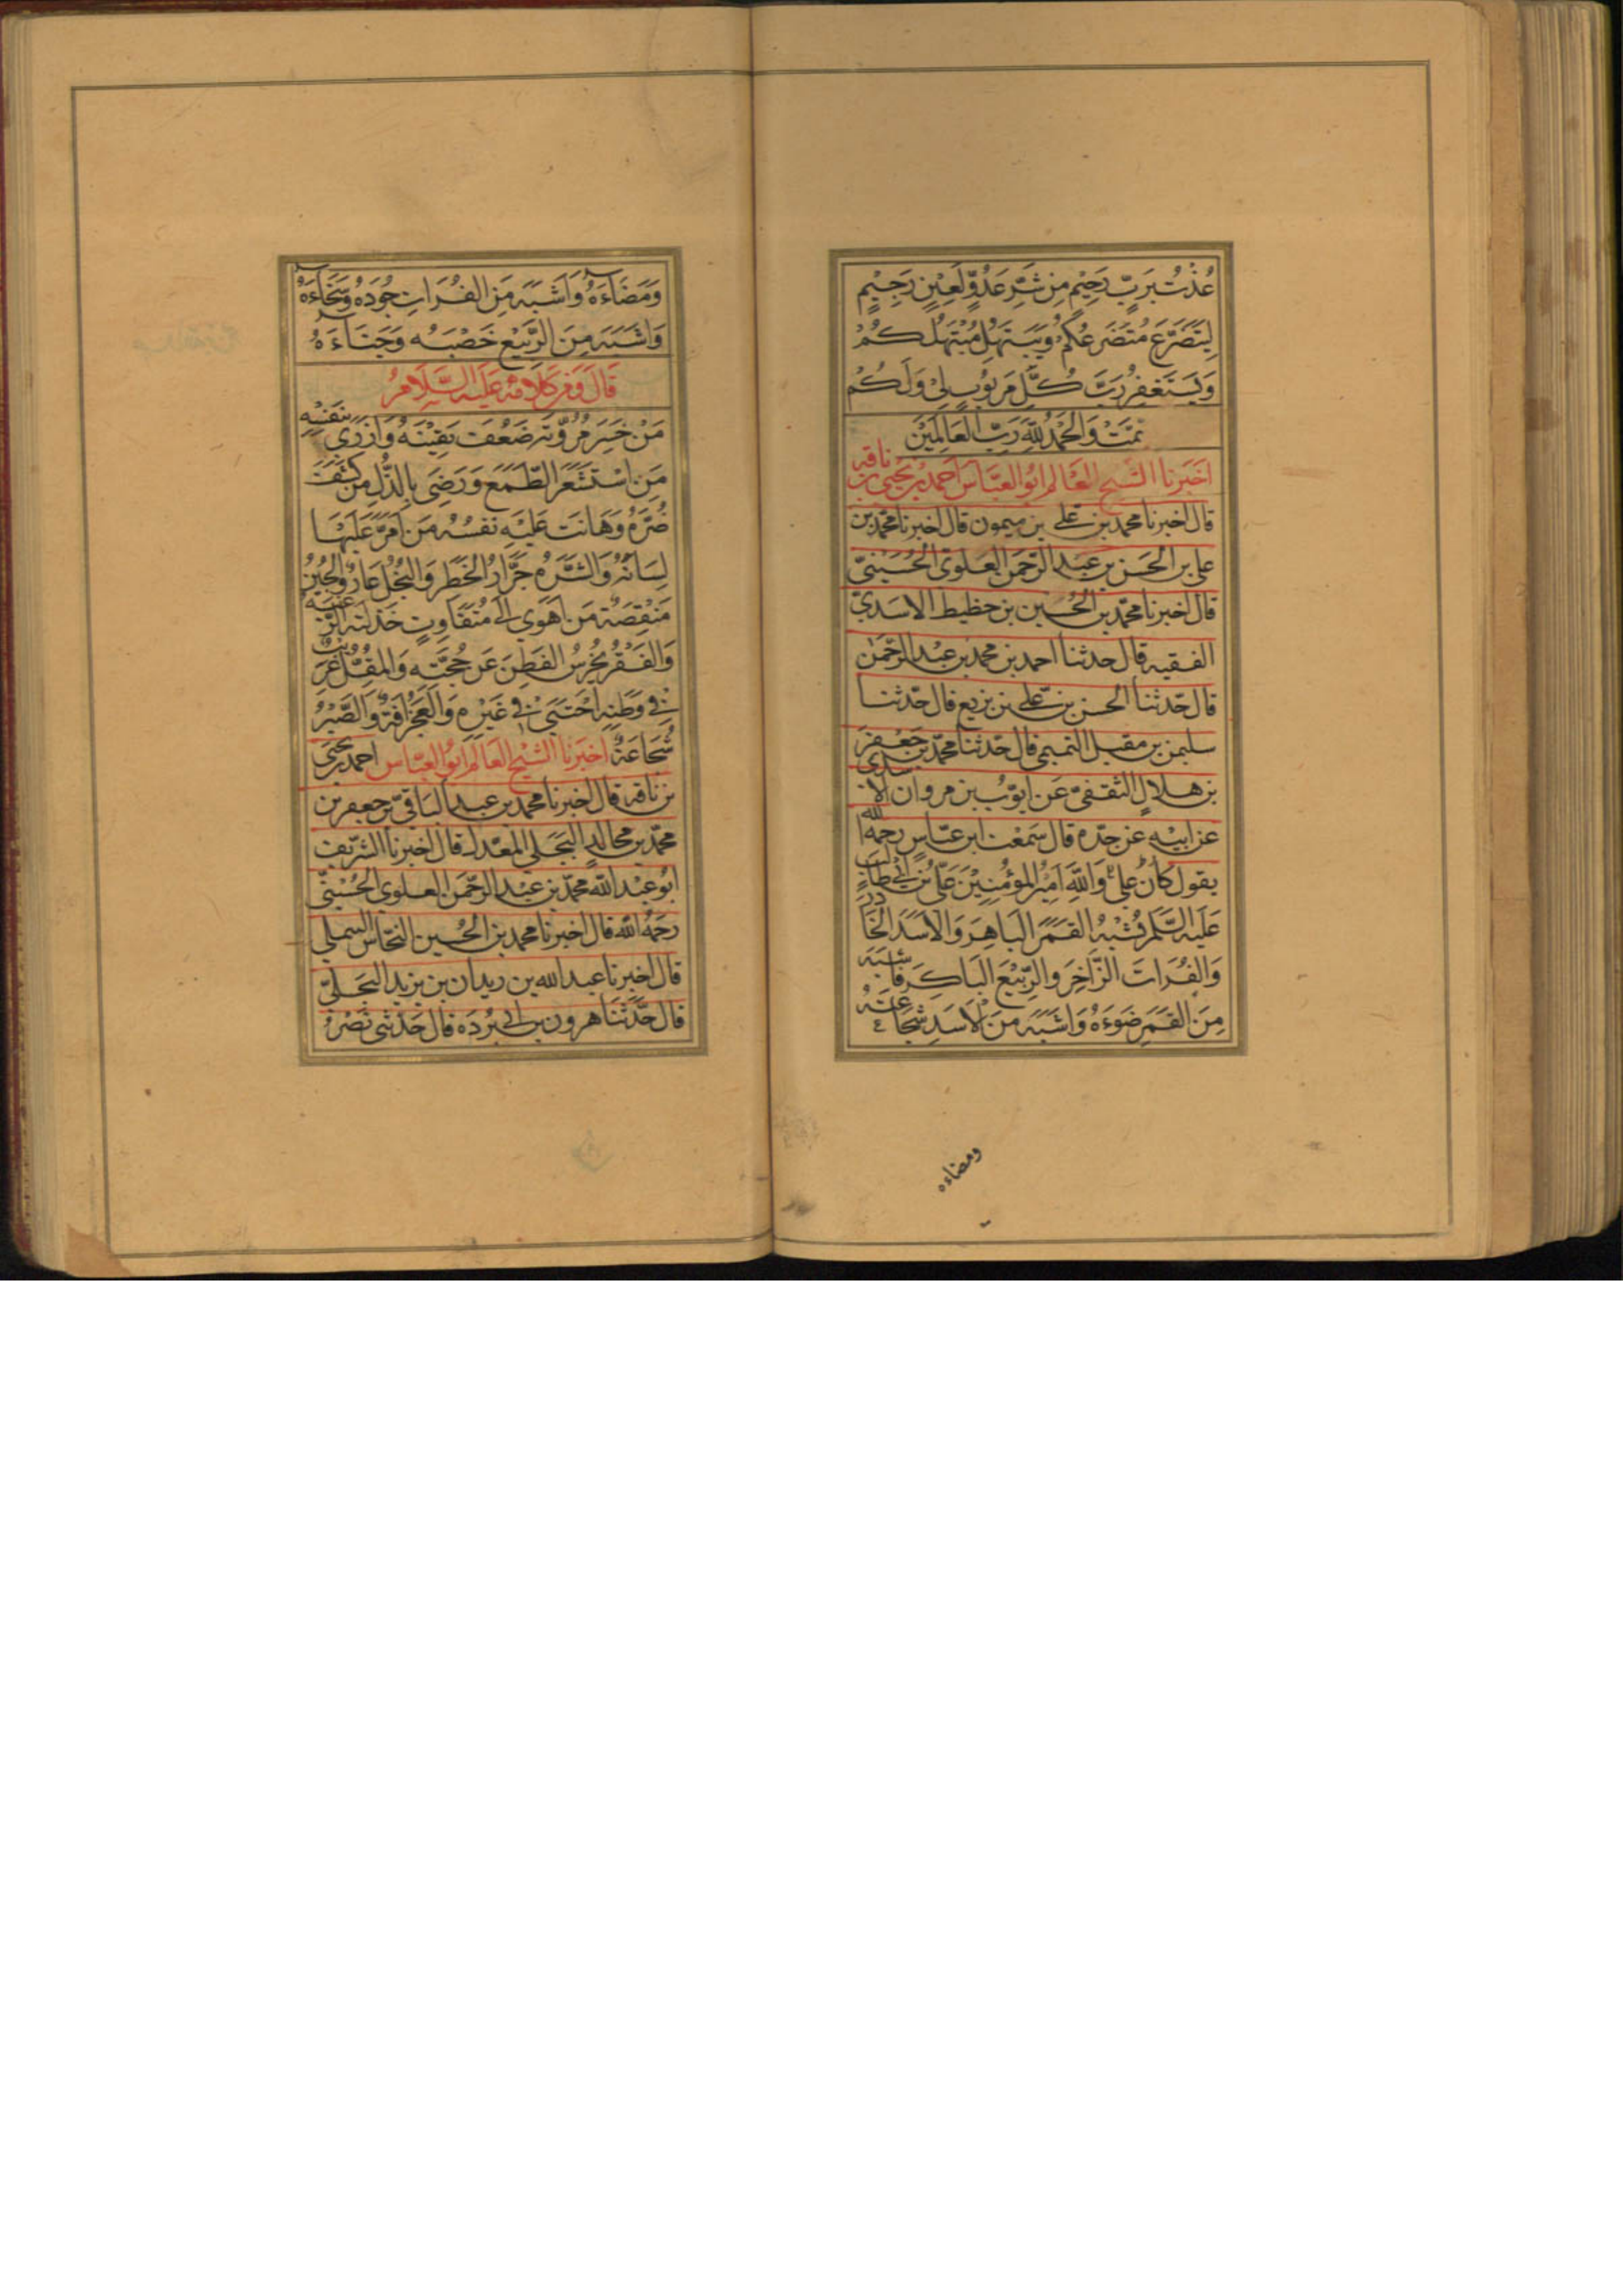 عُذْتُ بِرَبٍّ رَحِيْمٍ مِنْ شَرِّ عَدُوٍّ لَعِيْنٍ رَجِيْمٍ
لِيَتَضَرَّعَ مُتَضَرِّعُكُمْ وَيَبْتَهِلُ مُبْتَهِلُكُمْ
وَيَسْتَغْفِرُ رَبَّ كُلِّ مَرْبُوبٍ لِيْ وَلَكُمْ
تمَّتْ وَالحَمْدُ لِلّٰهِ رَبِّ العَالَمِيْنَ
اَخْبَرنا الشَّيخ العَالِم ابُو العَبَّاس احمد بن يَحْيٰى بن ناقه
قال اخبرنا محمد بن علي بن ميمون قال اخبرنا محمد بن
علي بن الحَسَن بن عَبد الرّحمٰن العَلَوى الحُسَيْنِيّ
قال اخبرنا محمد بن الحُسين بن حظيط الاسَديّ
الفقيه قال حدثنا احمد بن محمد بن عبْد الرّحْمٰن
قال حدّثنا الحسن بن علي بن بزيع قال حدّثنا
سليمن بن مقبل التميمي قال حدّثنا محمّد بن جَعْفَر
بن هلالٍ الثقفيّ عَن ايّوبُ بن مروان الاسدي
عن ابيْهِ عن جدّه قال سَمعْت ابن عبّاس رحمه الله
يقول كانَ علي وَاللّٰهِ اَمِيْرُ المؤْمِنِيْنَ عَلِيُّ بْنُ ابِيْ طالِب
عَلَيْهِ السَّلم يُشْبِهُ القَمَرَ البَاهِرَ وَالاَسَدَ الخَادِرَ
وَالفُرَاتَ الزَّاخِرَ وَالرَّبِيْعَ البَاكِرَ فَاَشْبَهَ
مِنَ القَمَرِ ضَوْءَهُ وَاَشْبَهَ مِنَ الْاَسَدِ شجَاعَتَهُ
ومضاءه
وَمَضَاءَهُ وَاَشْبَهَ مِنَ الفُرَاتِ جُوْدَهُ وَسَخَاءَهُ
وَاَشْبَهَ مِنَ الرَّبِيْعِ خَصْبَهُ وَحَيَاءَهُ
قَالَ وَمِنْ كَلَامِهِ عَلَيْهِ السَّلَامُ
مَنْ خَبَرَ مُرُوَّتَهُ ضَعُفَتْ يَقِيْنُهُ وَاَزْرٰى بِنَفْسِهِ
مَنِ اسْتَشْعَرَ الطَّمَعَ وَرَضِيَ بِالذُّلِ مَنْ كَشَفَ
ضُرَّهُ وَهَانَتْ عَلَيْهِ نفسُهُ مَنْ اَمَّرَ عَلَيْهَا
لِسَانَهُ وَالشَّرَهُ جَرَّارُ الخَطَرِ وَالبُخْلُ عَارٌ وَالجُبْنُ
مَنْقَصَةٌ مَنْ اَهْوَى اِلٰى مُتَفَاوِتٍ خَذَلَتْهُ الرَّغْبَةُ
وَالفَقْرُ يُخْرِسُ الفَطِنَ عَنْ حُجَّتِهِ وَالمُقِلُّ غَرِيْبٌ
فِيْ وَطَنِهِ اَجْنَبِيٌّ فِيْ غَيْرِهِ وَالعَجْزُ اٰفَةٌ وَالصَّبْرُ
شُجَاعَةٌ اخبَرَنا الشّيْخ العَالِم ابُو العَبَّاس احمد بن يَحْيٰى
بن ناقه قال اخبرنا محمد بن عبد البَاقي بن جعفر بن
محمّد بن مجالدٍ البَجَلِي المعَدّل قال اخبرنا الشريف
ابُو عَبْد اللّٰه محمّد بن عَبْد الرّحمٰن العلوى الحُسَيْنِيّ
رَحِمَهُ اللّٰه قال اخبرنا محمد بن الحُسين النخّاس السملي
قال اخبرنا عبد الله بن زيدان بن يزيد البَجَليّ
قال حدَّثَنا هرون بن ابي بُرْدَه قال حَدّثنى نَصْرُ